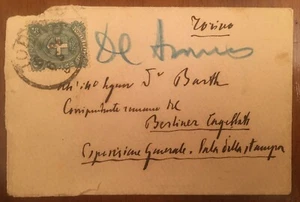 Torino
All'Ill.mo Signor Dr Barth
Corrispondente romano del
Berliner Tageblatt
Esposizione Generale. Sala della stampa